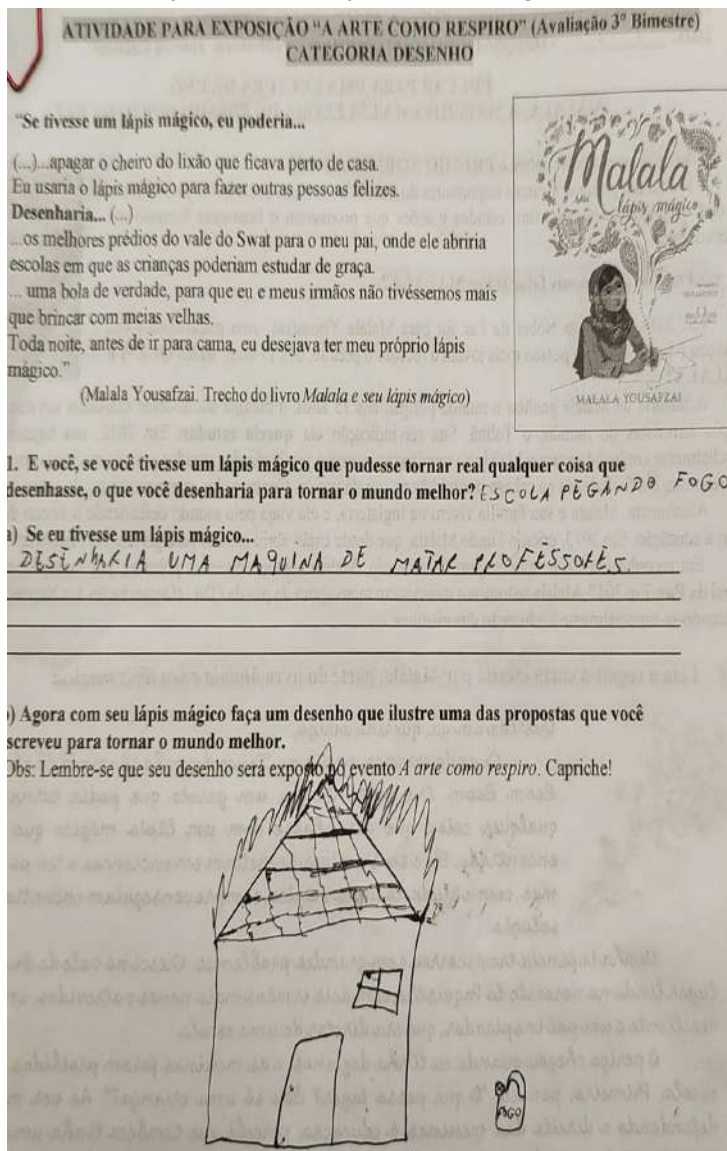 ATIVIDADE PARA EXPOSIÇÃO “A ARTE COMO RESPIRO” (Avaliação 3º Bimestre)
CATEGORIA DESENHO
“Se tivesse um lápis mágico, eu poderia...
(...)...apagar o cheiro do lixão que ficava perto de casa.
Eu usaria o lápis mágico para fazer outras pessoas felizes.
Desenharia... (...)
...os melhores prédios do vale do Swat para o meu pai, onde ele abriria
escolas em que as crianças poderiam estudar de graça.
... uma bola de verdade, para que eu e meus irmãos não tivéssemos mais
que brincar com meias velhas.
Toda noite, antes de ir para cama, eu desejava ter meu próprio lápis
mágico.”
(Malala Yousafzai. Trecho do livro Malala e seu lápis mágico)
Malala
e seu
lápis mágico
MALALA YOUSAFZAI
1. E você, se você tivesse um lápis mágico que pudesse tornar real qualquer coisa que
desenhasse, o que você desenharia para tornar o mundo melhor? ESCOLA PEGANDO FOGO
a) Se eu tivesse um lápis mágico...
DESENHARIA UMA MAQUINA DE MATAR PROFESSORES.
) Agora com seu lápis mágico faça um desenho que ilustre uma das propostas que você
screveu para tornar o mundo melhor.
Obs: Lembre-se que seu desenho será exposto no evento A arte como respiro. Capriche!
FOGO